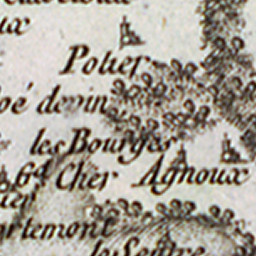 ux
Potier
oé devin
les Bourges
6d. Cher Agnoux
ier
artemont
le Sentre